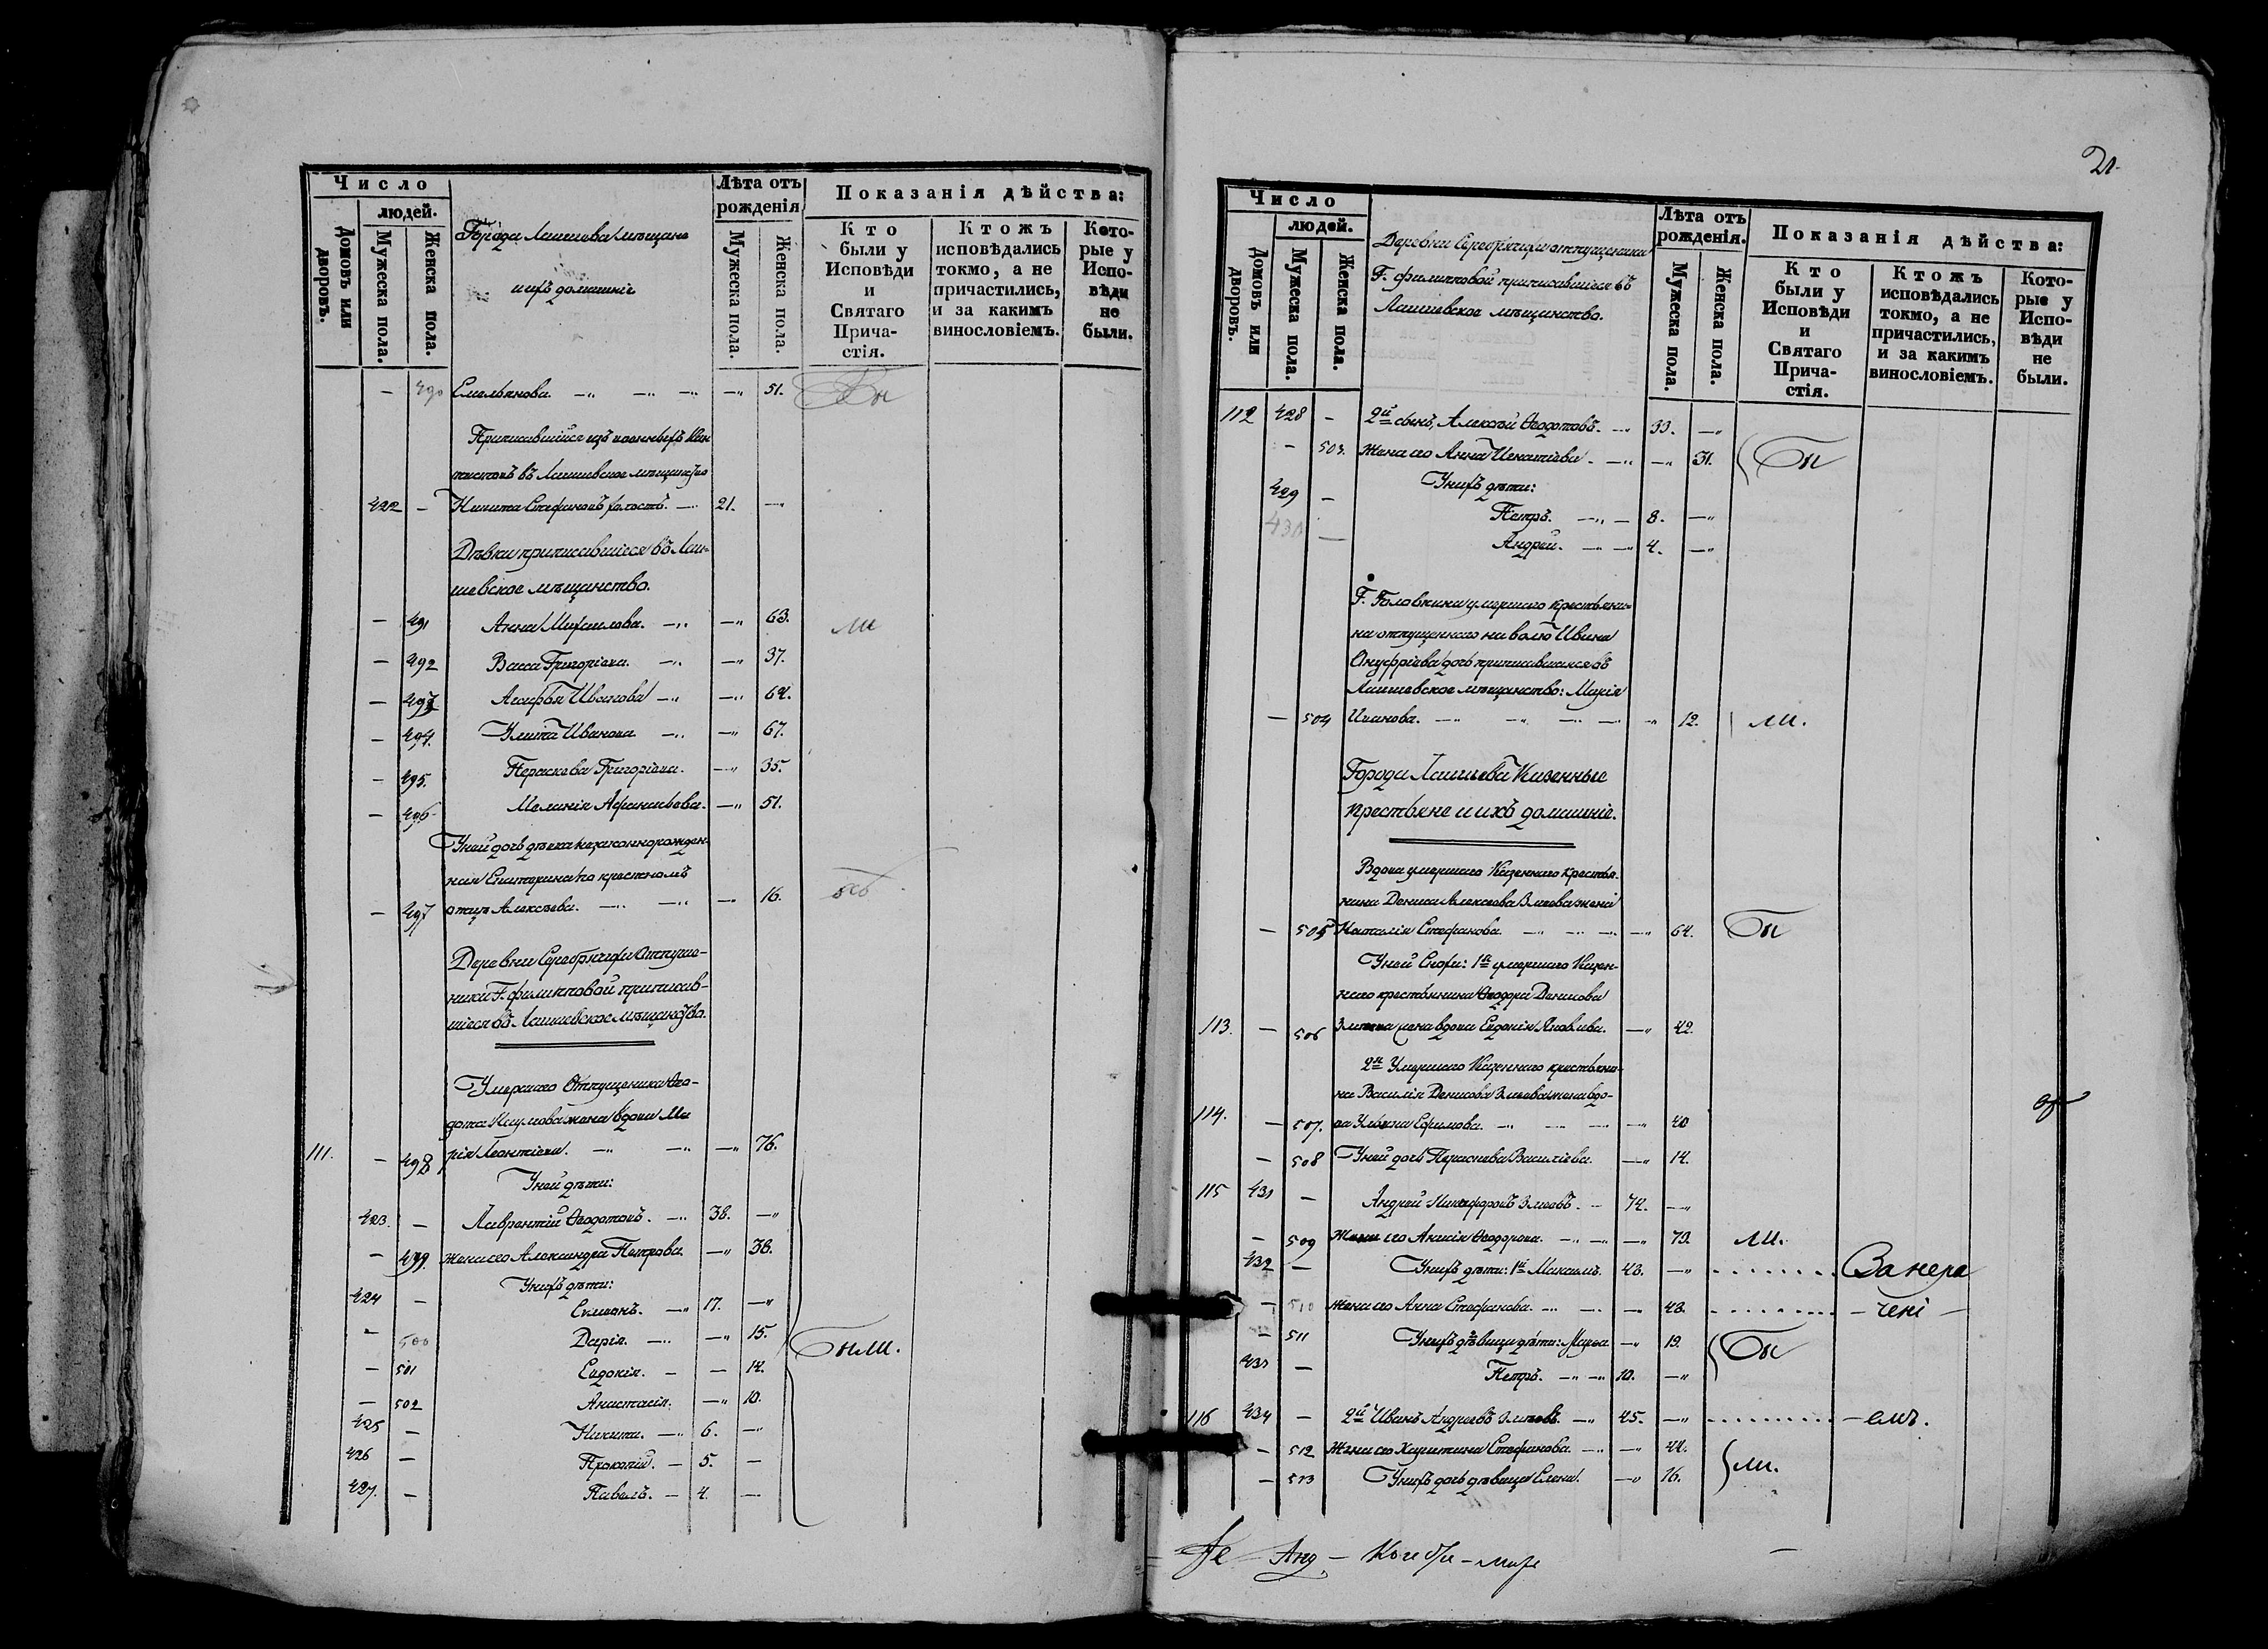 Число
людей.
Домовъ или дворовъ.
Мужеска пола.
Женска пола.
Города Лаишева мѣщане
и ихъ домашніе
Лѣта отъ рожденія
Мужеска пола.
Женска пола.
Показанія дѣйства:
Кто были у Исповѣди и Святаго Причастія.
Ктожъ исповѣдались токмо, а не причастились, и за какимъ винословіемъ.
Которые у Исповѣди не были.
— 490 Емельянова. —„ —„ —„ —„ 51. Бы
Приписавшійся изъ военныхъ Кан
тонистовъ въ Лаишевское мѣщанство
422 — Никита Стефановъ холостъ. —„ 21. —„
Дѣвки приписавшіеся въ Лаи-
шевское мѣщанство.
— 491 Анна Михаилова. —„ —„ 63. ли
— 492 Васса Григоріева. —„ —„ 37.
— 493 Агафья Иванова —„ —„ 64.
— 494. Улита Иванова —„ —„ 67.
— 495. Параскева Григоріева. —„ 35.
— 496 Меланія Афанасьева. —„ 51.
У ней дочь дѣвка незаконнорожден-
ная Екатерина по крестномъ
— 497 отцѣ Алексѣева. —„ —„ —„ 16.
Деревни Серебрячихи Отпуще-
ники Г. Филипповой приписав-
шіеся въ Лаишевское мѣщанство.
Умершаго Отпущеника Ѳео-
дота Наумова жена вдова Ма
111. — 498 рія Леонтіева. —„ —„ —„ 76.
У ней дѣти:
423. — Лаврентій Ѳеодотовъ. —„ 38. —„
— 499. жена его Александра Петрова. —„ 38.
У нихъ дѣти:
424 — Симеонъ. —„ 17. —„
— 500 Дарія. —„ —„ 15. Были.
— 501 Евдокія. — — 14.
— 502 Анастасія. —„ 10.
425 — Никита. —„ 6. —„
426 — Прокопій. — 5. —
427. — Павелъ. — 4. —
21.
Число
людей.
Домовъ или дворовъ.
Мужеска пола.
Женска пола.
Деревни Серебрячихи отпущеники
Г. Филипповой приписавшіеся въ
Лаишевское мѣщанство.
Лѣта отъ рожденія.
Мужеска пола.
Женска пола.
Показанія дѣйства:
Кто были у Исповѣди и Святаго Причастія.
Ктожъ исповѣдались токмо, а не причастились, и за какимъ винословіемъ.
Которые у Исповѣди не были.
112 428 — 2й сынъ, Алексѣй Ѳеодотовъ. —„ 33. —„
— 503. Жена его Анна Игнатіева. —„ —„ 31. Бы
У нихъ дѣти:
429 — Петръ. —„ — 8. —„
430 — Андрей. —„ —„ 4. —„
Г. Головкина умершаго крестьяни-
на отпущеннаго на волю Ивана
Онуфріева дочь приписавшаяся въ
Лаишевское мѣщанство: Марія
— 504 Иванова. —„ —„ —„ — „ 12. ли.
Города Лаишева Казенные
крестьяне и ихъ домашніе.
Вдова умершаго Казеннаго крестья-
нина Дениса Алексѣева Змѣева жена
— 505 Наталія Стефанова. —„ —„ —„ —„ 64. Бы
У ней Снохи: 1я умершаго Казен-
наго крестьянина Ѳеодора Денисова
113. — 506 Змѣева жена вдова Евдокія Яковлева. —„ 42.
2я Умершаго Казеннаго крестьяни-
на Василія Денисова Змѣева жена вдо-
114. — 507. ва Ульяна Ефимова. —„ —„ —„ —„ 40
— 508 У ней дочь Параскева Василіева. —„ 14.
115 431 — Андрей Никифоровъ Змѣевъ. — 74. —„
— 509 Жена его Анисія Ѳеодорова. —„ —„ —„ 73. ли.
432 — У нихъ дѣти: 1й Максимъ. 43. —„ За нера
— 510 жена его Анна Стефанова. —„ —„ —„ 43. — чені —
— 511 У нихъ дѣвица дѣти: Марѳа —„ 19. Бы
433 — Петръ. —„ —„ 10. —„
116 434 — 2й Иванъ Андреевъ Змѣевъ. —„ 45. —„ — емъ.
— 512 Жена его Харитина Стефанова. —„ —„ 44.
— 513 У нихъ дочь дѣвица Елена. —„ 16. ли.